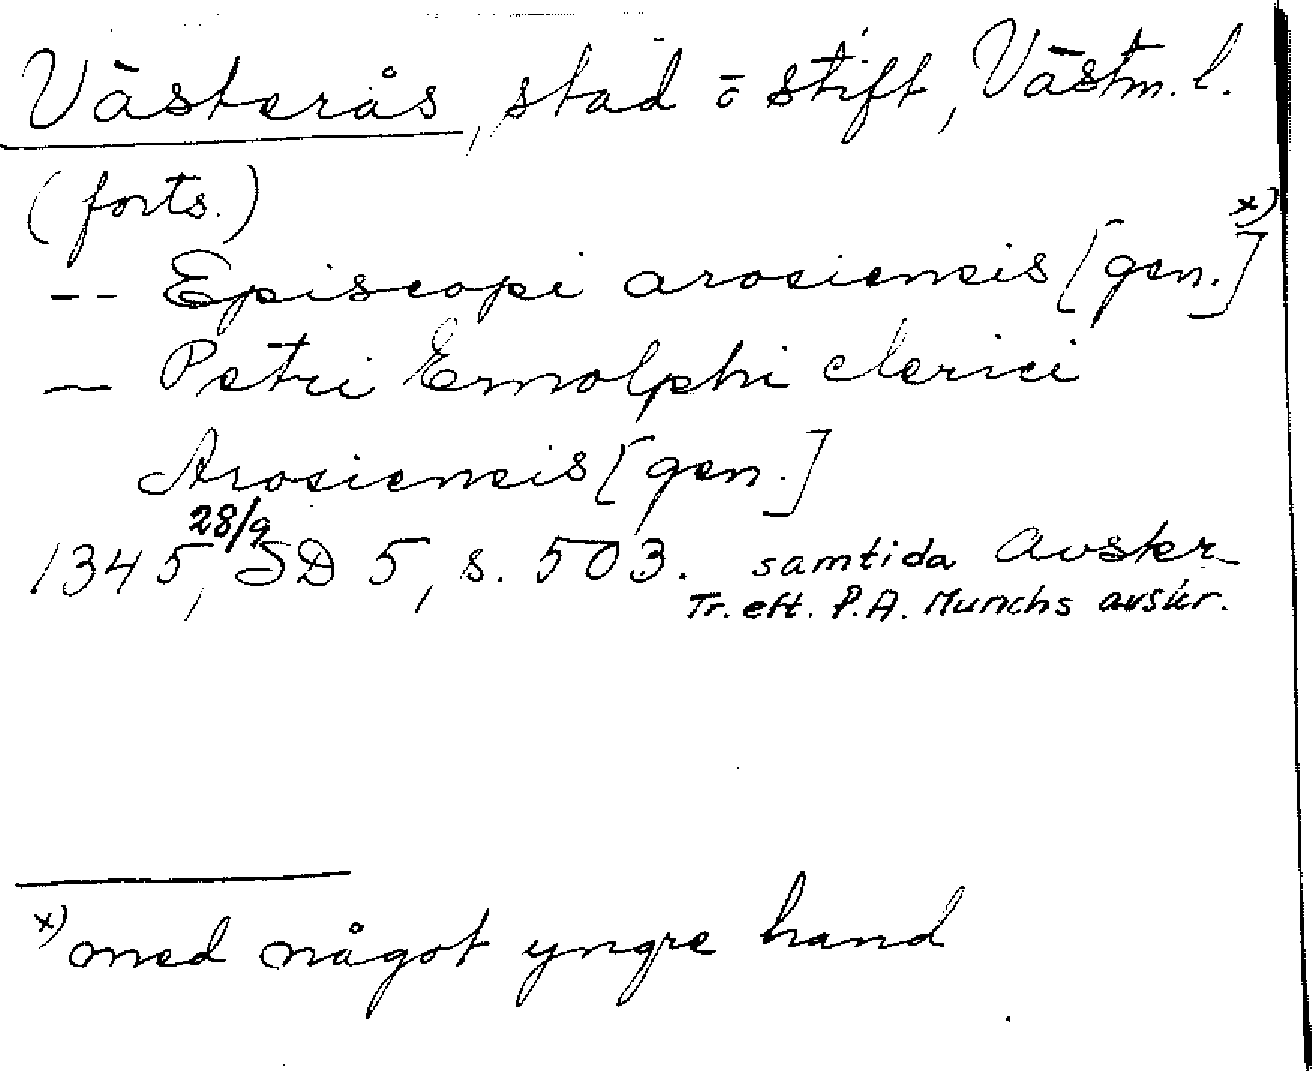 Västerås, stad o stift, Västm. l.
(forts.)
-- Episcopi arosiensis [gen.] x)
— Petri Ernolphi clerici
Arosiensis [gen.]
1345 28/9, SD 5, s. 503. samtida avskr
Tr. eft. P.A. Munchs avskr.
x) med något yngre hand